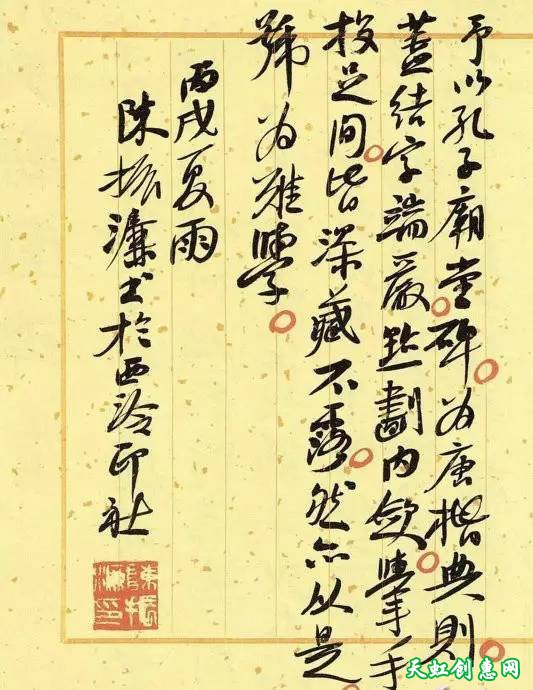 予以孔子廟堂碑為唐楷典則
蓋結字端嚴點劃內斂舉手
投足間皆深藏不露然亦以是
號為難學
丙戌夏雨
陳振濂書於西泠印社
陳振濂印
天虹创惠网